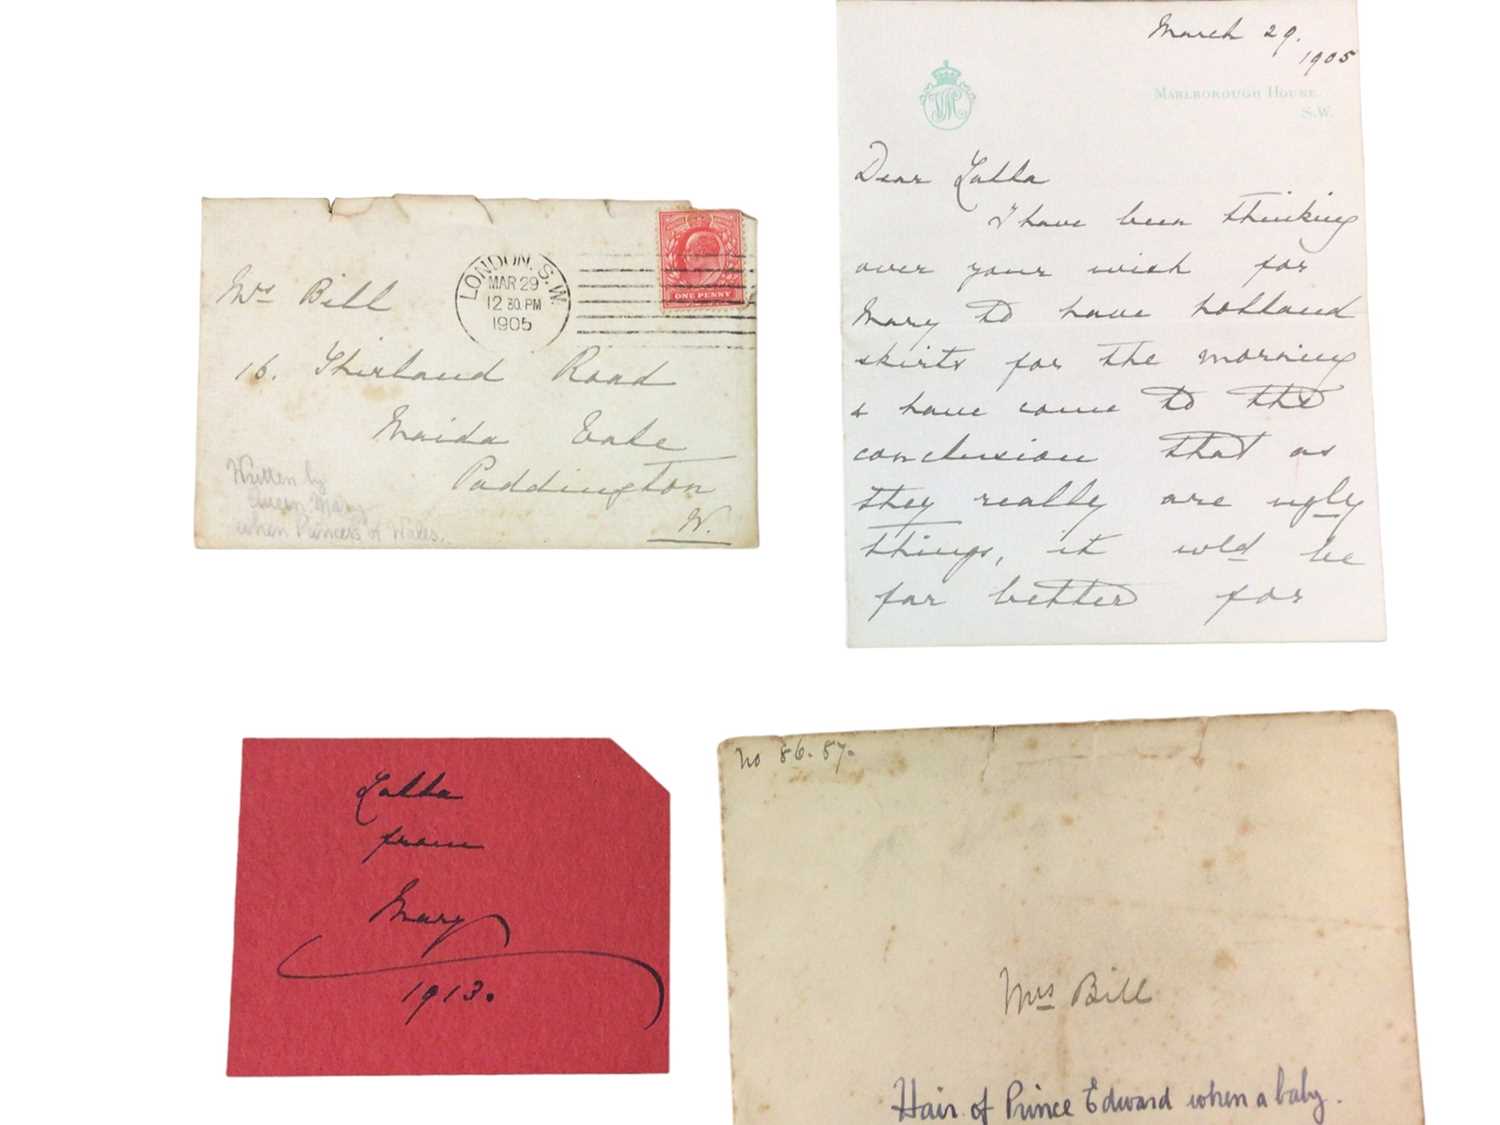 Mrs Bill
16. Shirland Road
Maida Vale
Paddington
W.
LONDON. S.W.
MAR 29
12 30 PM
1905
ONE PENNY
Written by
Queen Mary
when Princess of Wales.
March 29.
1905
MARLBOROUGH HOUSE.
S.W.
Dear Lalla
I have been thinking
over your wish for
Mary to have holland
skirts for the morning
& have come to the
conclusion that as
they really are ugly
things, it wld be
far better for
Lalla
from
Mary
1913.
No 86. 87.
Mrs Bill
Hair of Prince Edward when a baby.